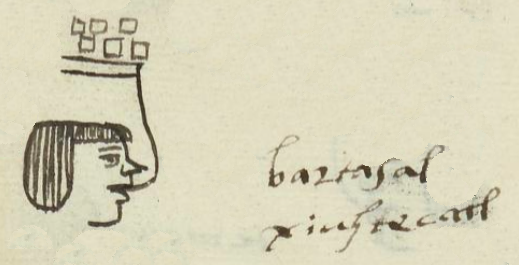 bartasal
xiuhtecatl